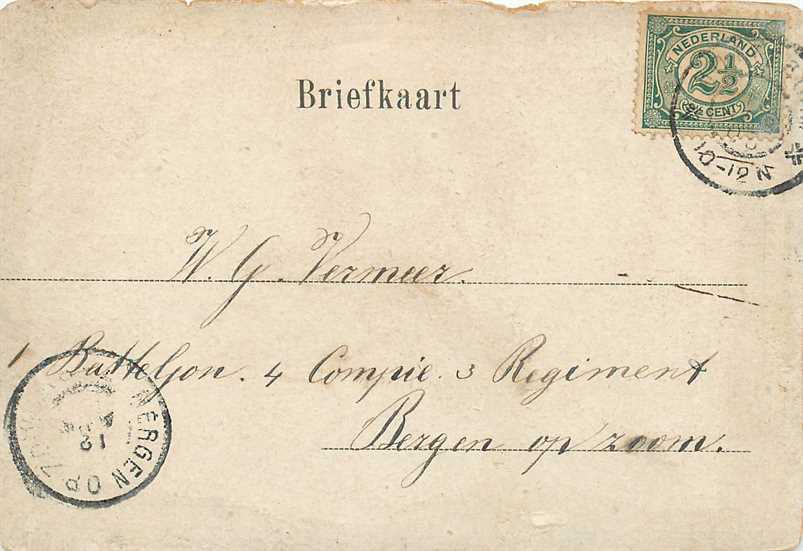 Briefkaart
NEDERLAND
2½
2½ CENT
10-12 N
W. G. Vermeer.
1 Batteljon. 4 Compie. 3 Regiment
Bergen op zoom.
BERGEN OP
12